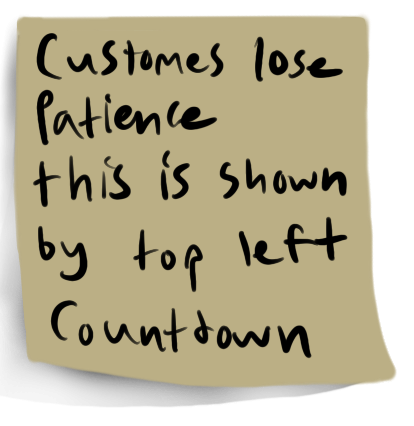 Customes lose
Patience
this is shown
by top left
Countdown